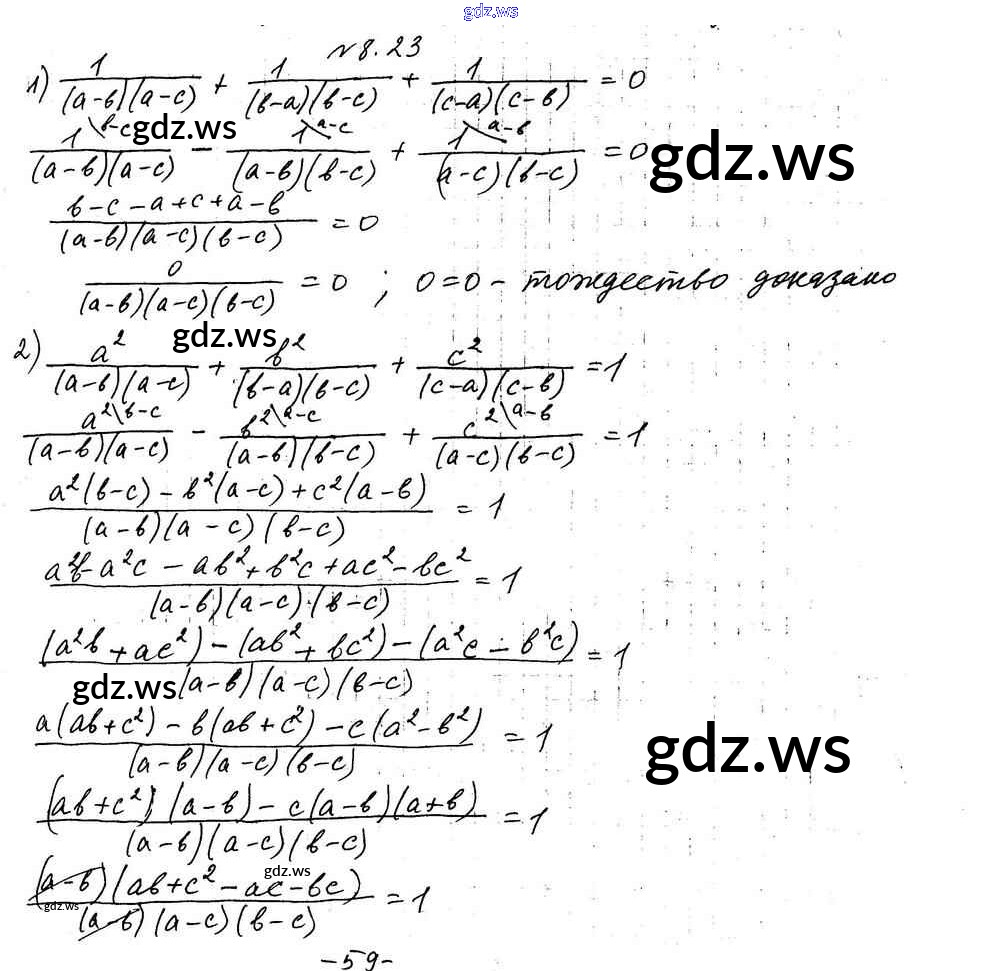 gdz.ws
№8.23
1) 1/((a-b)(a-c)) + 1/((b-a)(b-c)) + 1/((c-a)(c-b)) = 0
1\b-c/((a-b)(a-c)) - 1\a-c/((a-b)(b-c)) + 1\a-b/((a-c)(b-c)) = 0
gdz.ws
gdz.ws
(b-c-a+c+a-b)/((a-b)(a-c)(b-c)) = 0
0/((a-b)(a-c)(b-c)) = 0 ; 0=0 - тождество доказано
gdz.ws
2) a²/((a-b)(a-c)) + b²/((b-a)(b-c)) + c²/((c-a)(c-b)) = 1
a²\b-c/((a-b)(a-c)) - b²\a-c/((a-b)(b-c)) + c²\a-b/((a-c)(b-c)) = 1
(a²(b-c) - b²(a-c) + c²(a-b))/((a-b)(a-c)(b-c)) = 1
(a²b - a²c - ab² + b²c + ac² - bc²)/((a-b)(a-c)(b-c)) = 1
((a²b + ac²) - (ab² + bc²) - (a²c - b²c))/((a-b)(a-c)(b-c)) = 1
gdz.ws
(a(ab+c²) - b(ab+c²) - c(a²-b²))/((a-b)(a-c)(b-c)) = 1
gdz.ws
((ab+c²)(a-b) - c(a-b)(a+b))/((a-b)(a-c)(b-c)) = 1
((a-b)(ab+c²-ac-bc))/((a-b)(a-c)(b-c)) = 1
gdz.ws
gdz.ws
-59-